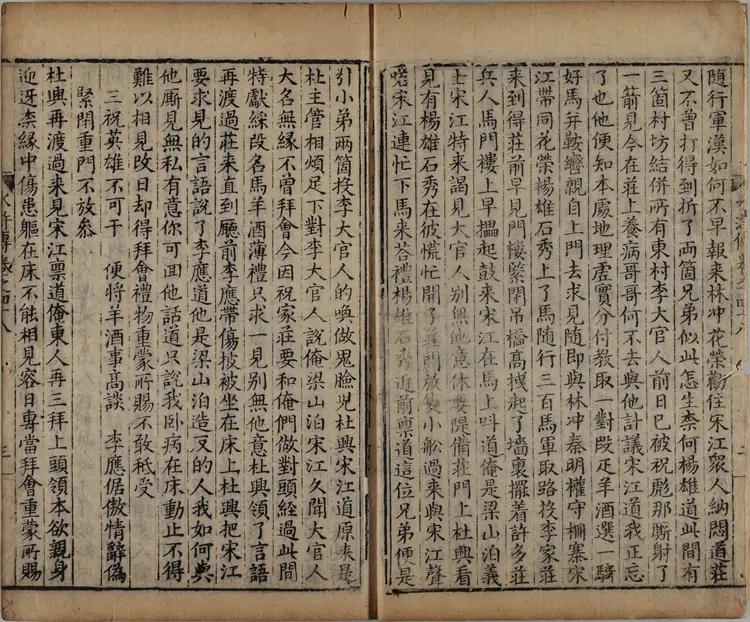 随行軍漢如何不早報来林冲花榮勸住宋江衆人納悶道莊
又不曽打得到折了兩箇兄弟似此怎生柰何楊雄道此間有
三箇村坊結併所有東村李大官人前日已被祝彪那厮射了
一箭見今在莊上養病哥哥何不去與他計議宋江道我正忘
了也他便知本處地理虚實分付教取一對段疋羊酒選一騎
好馬并鞍轡親自上門去求見随即與林冲秦明權守柵寨宋
江帶同花榮楊雄石秀上了馬随行三百馬軍取路投李家莊
来到得莊前早見門樓緊閉吊橋高拽起了墻裏擺着許多莊
兵人馬門樓上早擂起鼓来宋江在馬上呌道俺是梁山泊義
士宋江特来謁見大官人别無他意休要隄備莊門上杜興看
見有楊雄石秀在彼慌忙開了莊門放隻小舡過来與宋江聲
喏宋江連忙下馬来荅禮楊雄石秀近前禀道這位兄弟便是
引小弟兩箇投李大官人的喚做鬼臉兒杜興宋江道原来是
杜主管相煩足下對李大官人說俺梁山泊宋江久聞大官人
大名無縁不曽拜會今因祝家莊要和俺們做對頭經過此間
特獻綵段名馬羊酒薄禮只求一見别無他意杜興領了言語
再渡過莊来直到廳前李應帶傷披被坐在床上杜興把宋江
要求見的言語說了李應道他是梁山泊造反的人我如何與
他厮見無私有意你可回他話道只說我卧病在床動止不得
難以相見改日却得拜會禮物重蒙所賜不敢秪受
三祝英雄不可干　便將羊酒事髙談　李應倨傲情辭偽
緊閉重門不放叅
杜興再渡過来見宋江禀道俺東人再三拜上頭領本欲親身
迎迓柰縁中傷患軀在床不能相見容日專當拜會重蒙所賜